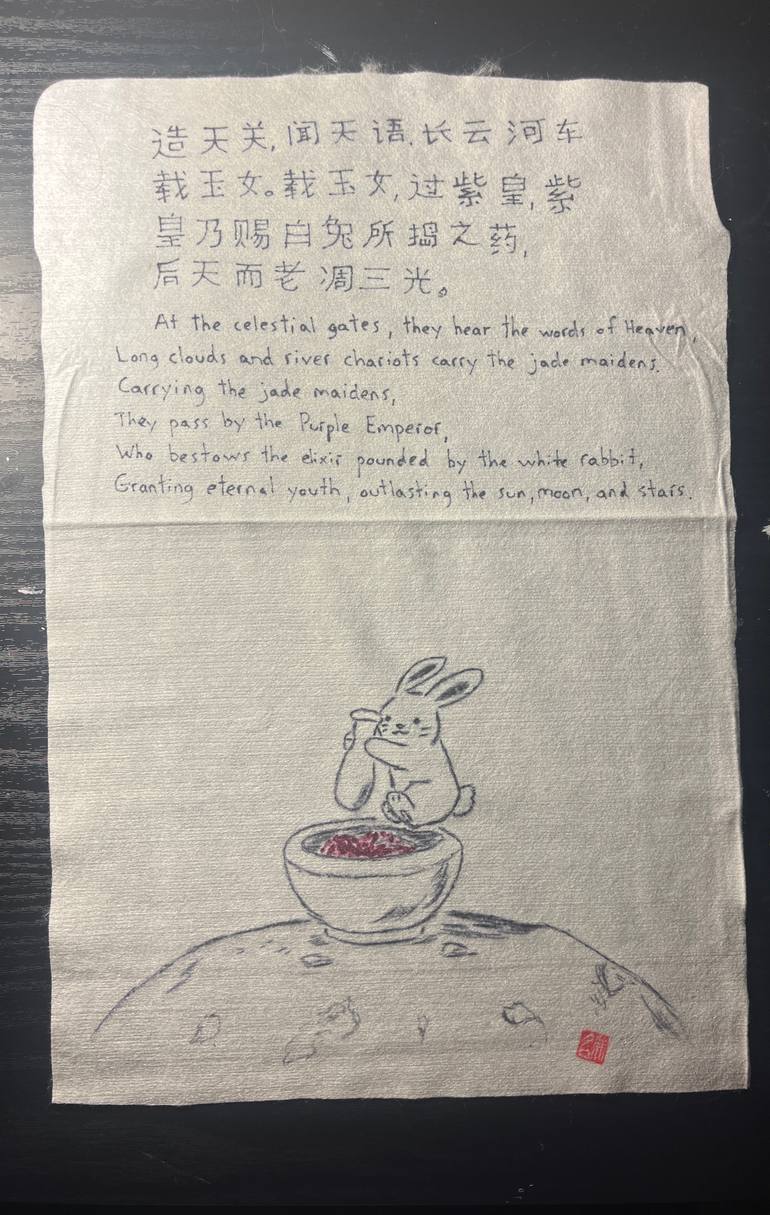 造天关,闻天语.长云河车
载玉女。载玉女,过紫皇,紫
皇乃赐白兔所捣之药,
后天而老凋三光。
At the celestial gates, they hear the words of Heaven,
Long clouds and river chariots carry the jade maidens.
Carrying the jade maidens,
They pass by the Purple Emperor,
Who bestows the elixir pounded by the white rabbit,
Granting eternal youth, outlasting the sun, moon, and stars.